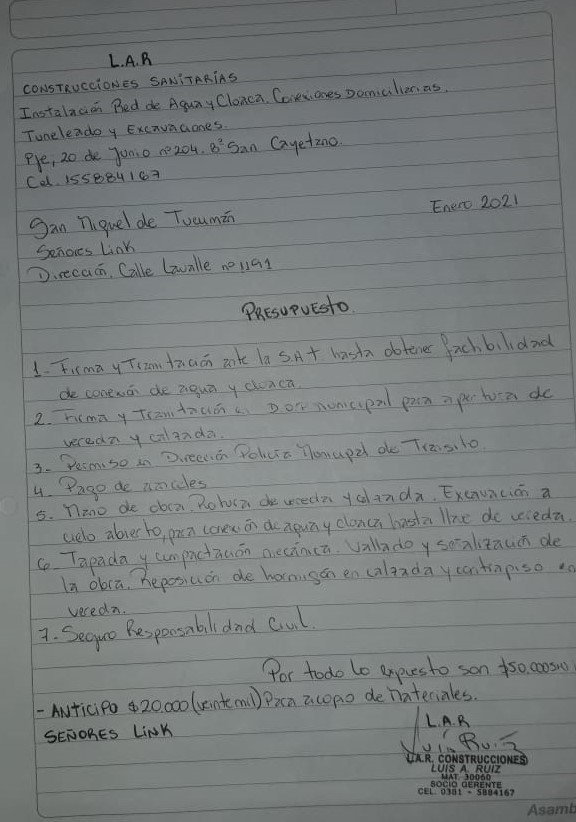 L.A.R
CONSTRUCCIONES SANITARIAS
Instalación Red de Agua y Cloaca. Conexiones Domiciliarias.
Tuneleado y Excavaciones.
Pje, 20 de Junio nº 204. Bº San Cayetano.
Cel. 155884167
San Miguel de Tucumán Enero 2021
Señores Link
Dirección, Calle Lavalle nº 1191
PRESUPUESTO
1- Firma y Tramitación ante la S.A.T hasta obtener factibilidad
de conexión de agua y cloaca.
2. Firma y Tramitación en D.O.P municipal para apertura de
vereda y calzada.
3- Permiso en Dirección Policia Municipal de Transito.
4. Pago de aranceles
5. Mano de obra. Rotura de vereda y calzada. Excavación a
cielo abierto, para conexión de agua y cloaca hasta llave de vereda.
6- Tapada y compactación mecánica. Vallado y señalización de
la obra. Reposición de hormigón en calzada y contrapiso en
vereda.
7. Seguro Responsabilidad Civil.
Por todo lo expuesto son $50.000
- ANTICIPO $20.000 (veinte mil) Para acopio de materiales.
SEÑORES LINK
L.A.R
Luis Ruiz
L.A.R. CONSTRUCCIONES
LUIS A. RUIZ
MAT 30060
SOCIO GERENTE
CEL. 0381 - 5884167
Asamb